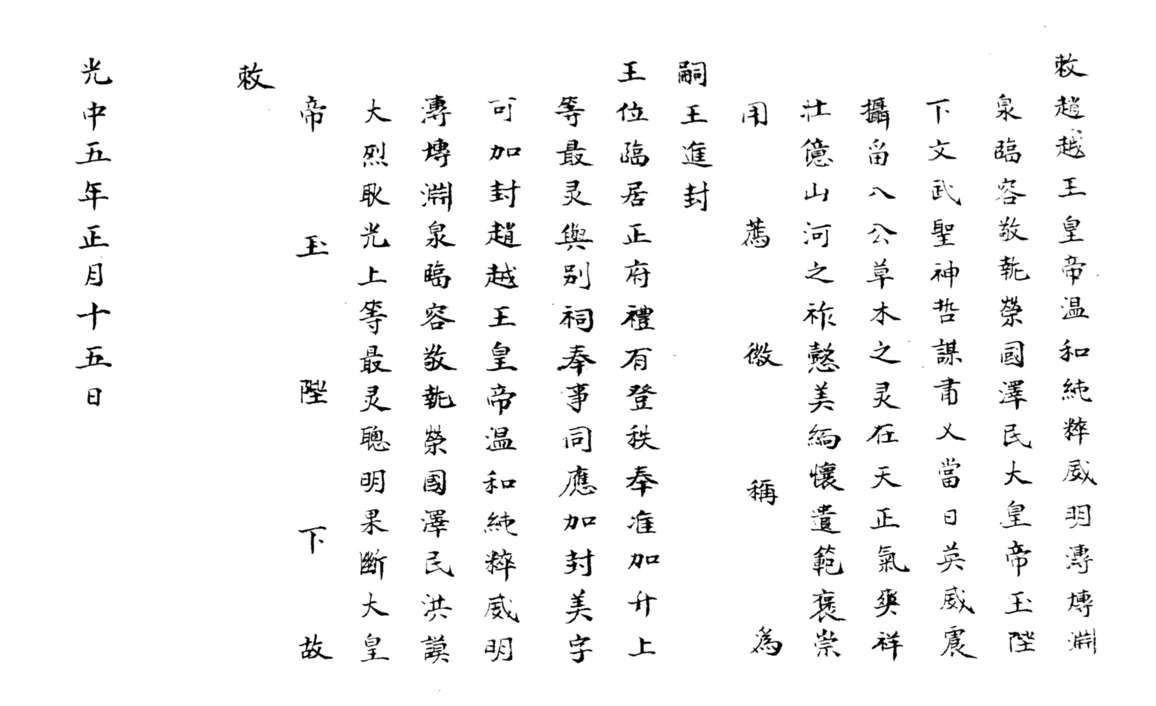 敕趙越王皇帝温和純粹威明溥博淵
泉臨容敬執榮國澤民大皇帝玉陛
下文武聖神哲謀肅乂當日英威震
攝畨八公草木之灵在天正氣奠祥
壯億山河之祚懿美緬懷遺範褒崇
用薦徽稱為
嗣王進封
王位臨居正府禮有登秩奉准加升上
等最灵與別祠奉事同應加封美字
可加封趙越王皇帝温和純粹威明
溥博淵泉臨容敬執榮國澤民洪謨
大烈耿光上等最灵聰明果斷大皇
帝玉陛下故
敕
光中五年正月十五日